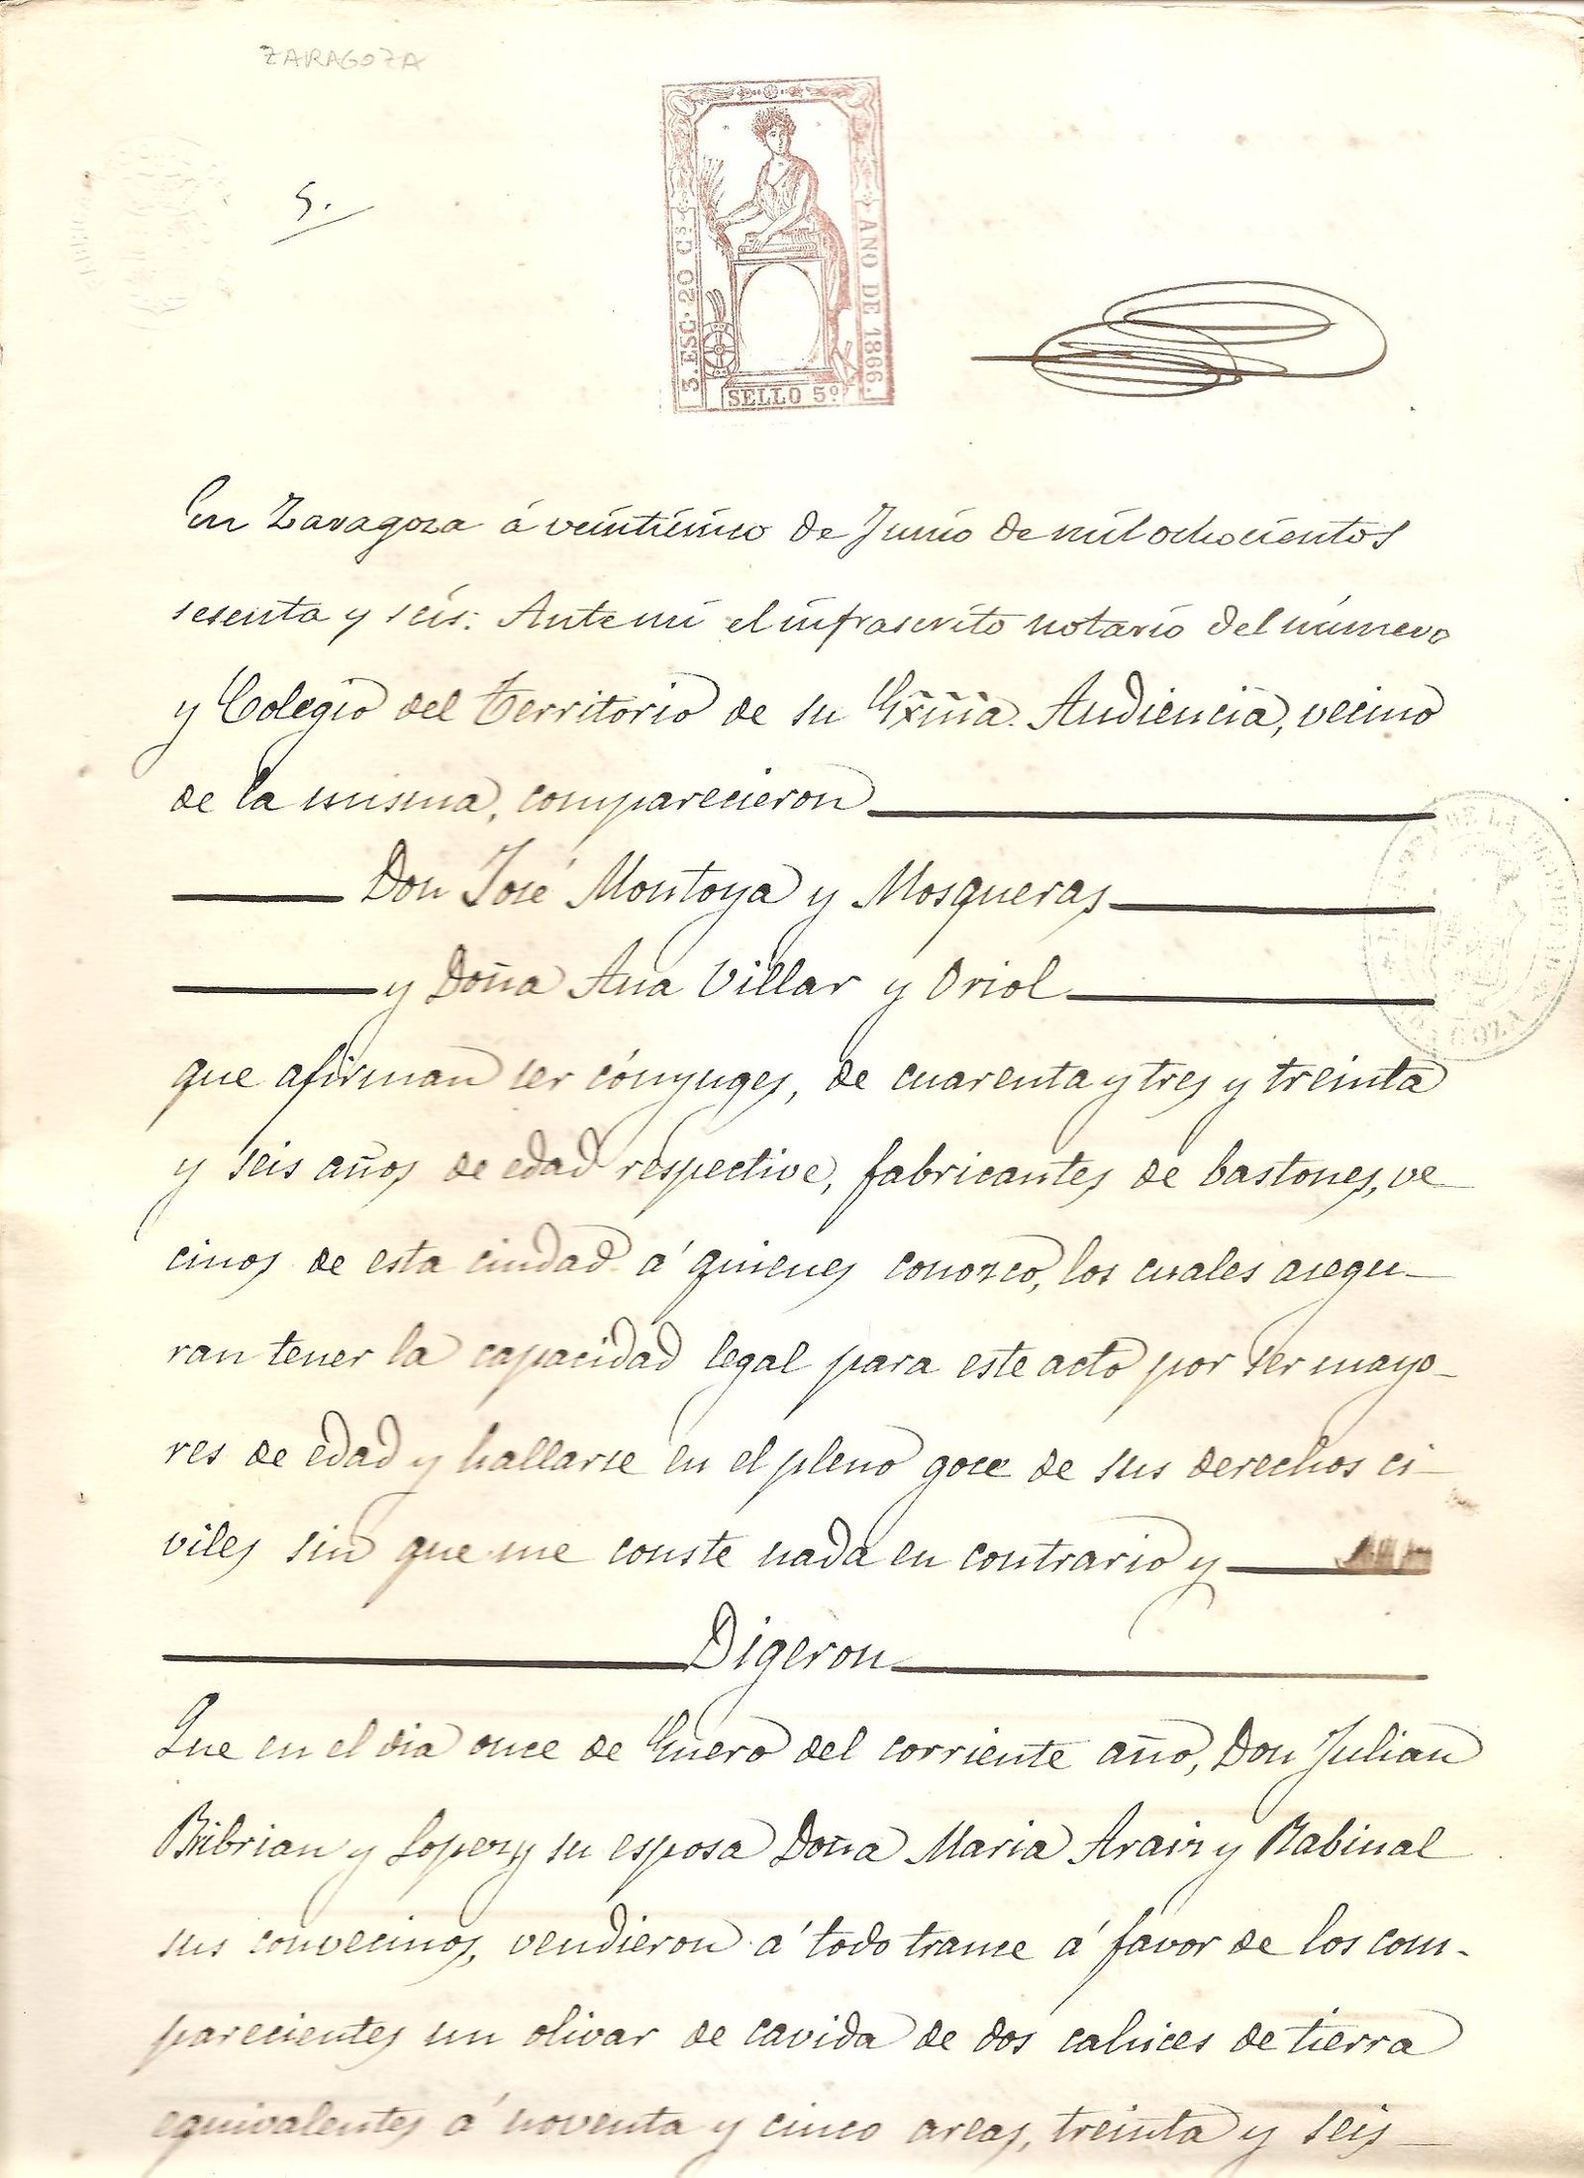 ZARAGOZA
5.
3. ESC. 20 Cs.
AÑO DE 1866.
SELLO 5º
En Zaragoza á veinticinco de Junio de mil ochocientos
sesenta y seis: Ante mi el infrascrito notario del número
y Colegio del Territorio de su Exma. Audiencia, vecino
de la misma, comparecieron
Don José Montoya y Mosqueras
y Doña Ana Villar y Oriol
que afirman ser cónyuges, de cuarenta y tres y treinta
y seis años de edad respective, fabricantes de bastones, ve
cinos de esta ciudad á quienes conozco, los cuales asegu-
ran tener la capacidad legal para este acto por ser mayo-
res de edad y hallarse en el pleno goce de sus derechos ci-
viles sin que me conste nada en contrario y
Digeron
Que en el dia once de Enero del corriente año, Don Julian
Bribrian y Lopez y su esposa Doña Maria Araiz y Rabinal
sus convecinos, vendieron á todo trance á favor de los com-
parecientes un olivar de cavida de dos cahices de tierra
equivalentes á noventa y cinco areas, treinta y seis